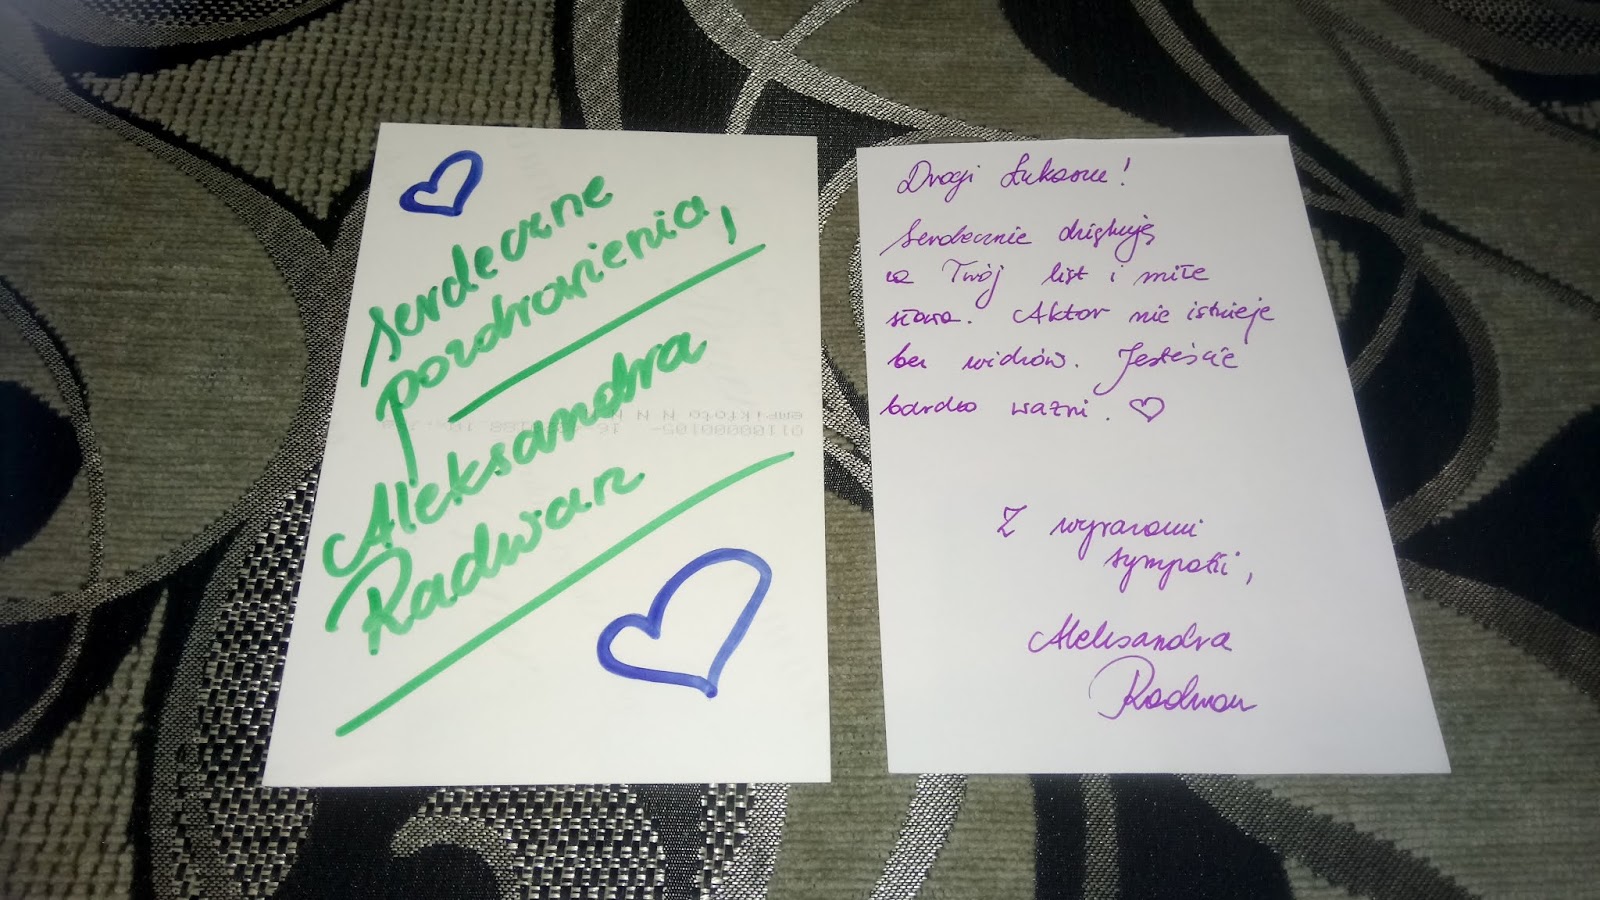 serdeczne
pozdrowienia,
Aleksandra
Radwan
Drogi Łukaszu!
Serdecznie dziękuję
za Twój list i miłe
słowa. Aktor nie istnieje
bez widzów. Jesteście
bardzo ważni. ♡
Z wyrazami
sympatii,
Aleksandra
Radwan